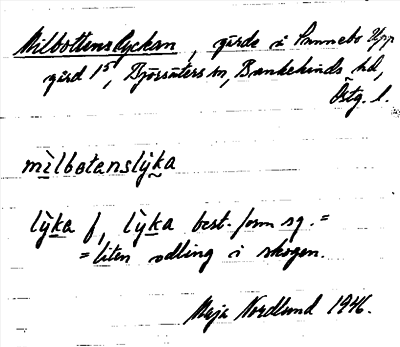 Milbottenslyckan, gärde i Sannebo Upp
gärd 1⁵, Björsäters sn, Bankekinds hd,
Östg. l.
mìlbotanslỳka
lỳka f, lỳka best. form sg. =
= liten odling i skogen.
Maja Nordlund 1946.